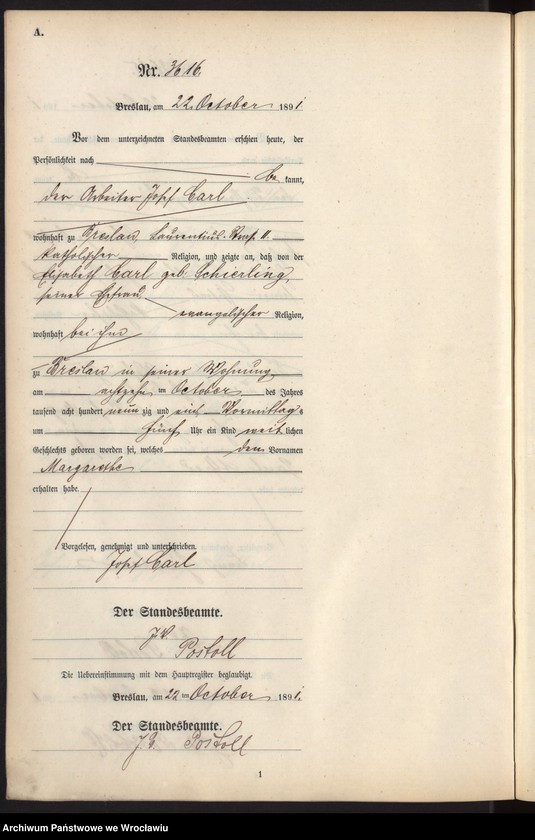 A.
Nr. 3616.
Breslau, am 22. October 1891.
Vor dem unterzeichneten Standesbeamten erschien heute, der
Persönlichkeit nach
be kannt,
der Arbeiter Josef Carl
wohnhaft zu Breslau, Laurentius-Straß. 11.
katholischer Religion, und zeigte an, daß von der
Elisabeth Carl geb. Schierling,
seiner Ehefrau
evangelischer Religion,
wohnhaft bei ihm
zu Breslau in seiner Wohnung
am achtzehn ten October des Jahres
tausend acht hundert neun zig und eins Vormittags
um fünf Uhr ein Kind weib lichen
Geschlechts geboren worden sei, welches den Vornamen
Margarethe
erhalten habe.
Vorgelesen, genehmigt und unterschrieben.
Josef Carl
Der Standesbeamte.
J. V.
Postoll
Die Uebereinstimmung mit dem Hauptregister beglaubigt.
Breslau, am 22 ten October 1891.
Der Standesbeamte.
J. V. Postoll
1
Archiwum Państwowe we Wrocławiu